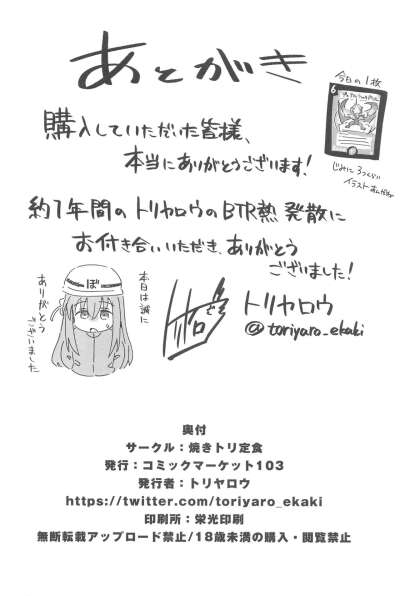 あとがき
今日の1枚
6
購入していただいた皆様、
本当にありがとうございます!
じみに3つくらい
約1年間のトリヤロウのBTR熱発散に
お付き合いいただき、ありがとう
ございました!
ぼ
本日は誠に
ありがとう
ございました
トリヤロウ
@toriyaro_ekaki
奥付
サークル:焼きトリ定食
発行:コミックマーケット103
発行者:トリヤロウ
https://twitter.com/toriyaro_ekaki
印刷所:栄光印刷
無断転載アップロード禁止/18歳未満の購入・閲覧禁止